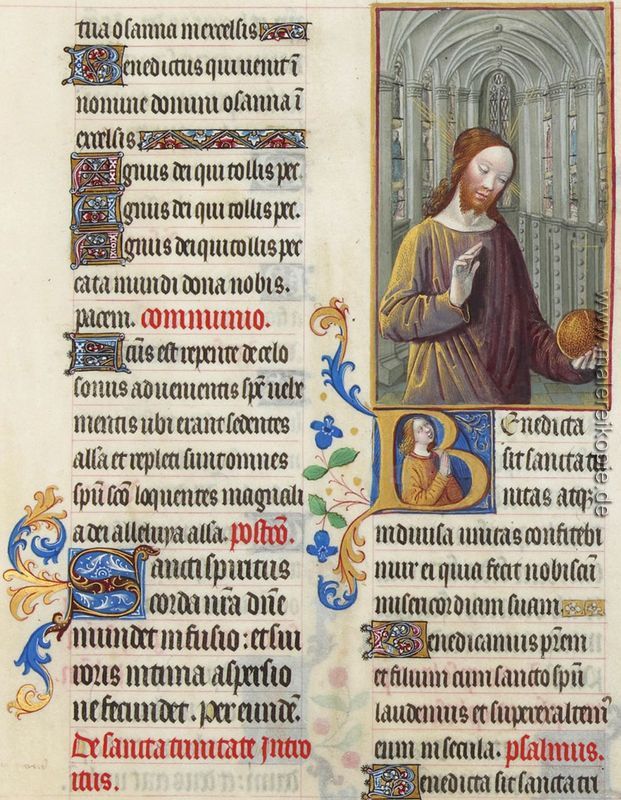 tua osanna in excelsis
Benedictus qui venit ī
nomine domini osanna ī
excelsis.
Agnus dei qui tollis pec.
Agnus dei qui tollis pec.
Agnus dei qui tollis pec
cata mundi dona nobis.
pacem. communio.
Factus est repente de celo
sonus advenientis spūs vehe
mentis ubi erant sedentes
alla et repleti sunt omnes
spū scō loquentes magnali
a dei alleluya alla. postcō.
Sancti spiritus
corda nrā dnē
mundet infusio: et sui
roris intima aspersio
ne fecundet. Per eundē.
De sancta trinitate Intro
itus.
Benedicta
sit sancta tri
nitas atqz
indivisa unitas confitebi
mur ei quia fecit nobiscū
misericordiam suam
Benedicamus prēm
et filium cum sancto spū
laudemus et superexaltem9
eum in secula. psalmus.
Benedicta sit sancta tri
www.malereikopie.de